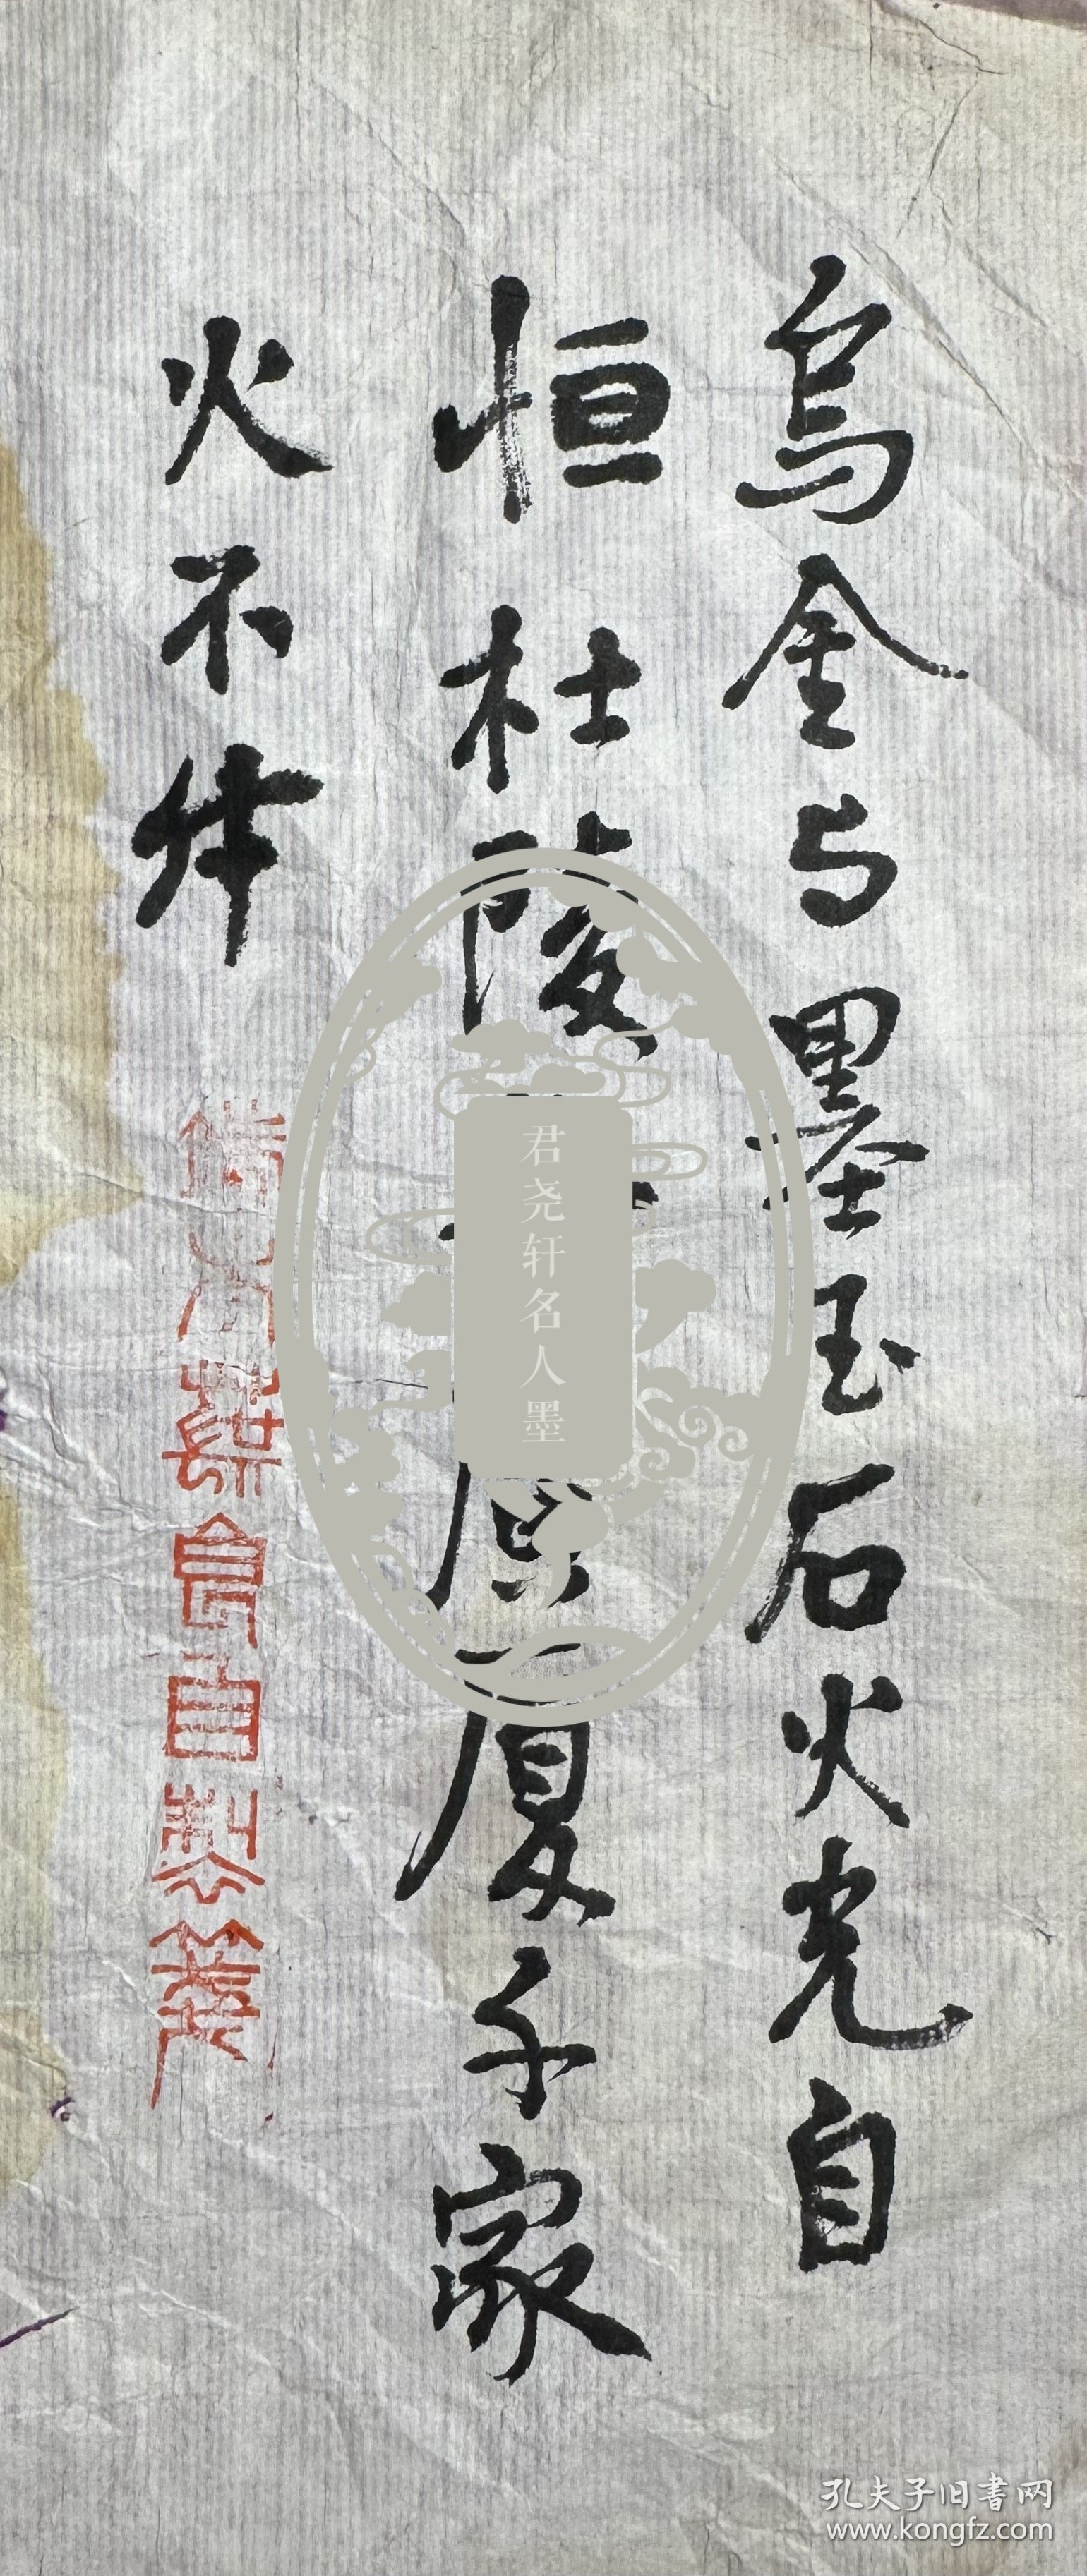 烏金与墨玉石火光自
恒杜陵厦千家
火不休
食自製箋
君尧轩名人墨
孔夫子旧書网
www.kongfz.com